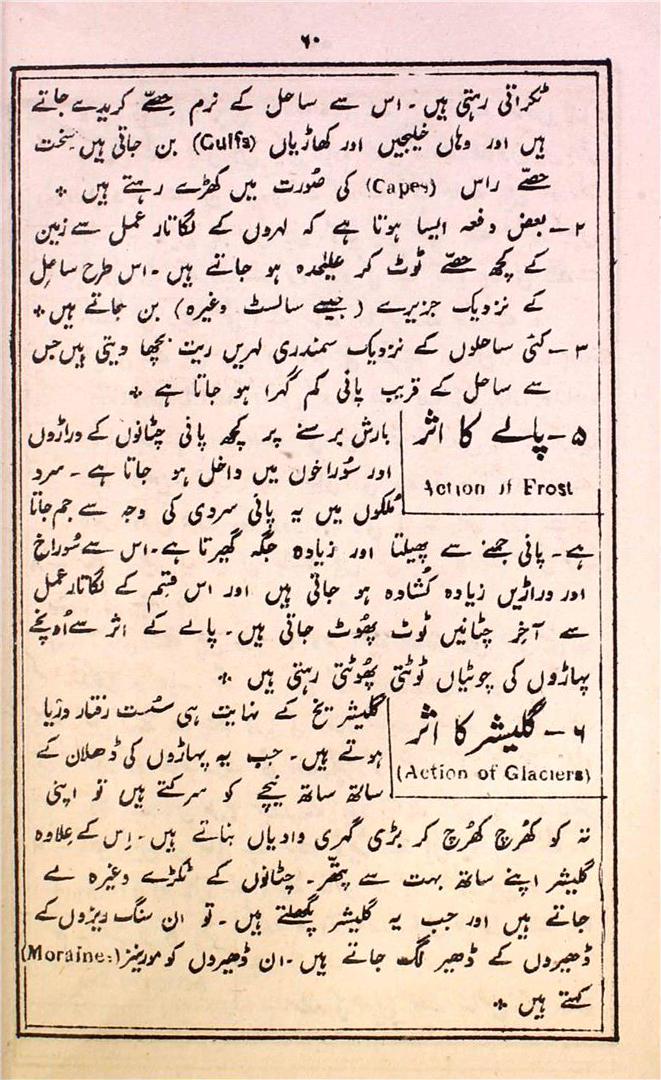 ۶۰
ٹکراتی رہتی ہیں ۔ اس سے ساحل کے نرم حصّے کریدے جاتے
ہیں اور وہاں خلیجیں اور کھاڑیاں (Gulfs) بن جاتی ہیں سخت
حصّے راس (Capes) کی صُورت میں کھڑے رہتے ہیں *
۲ ۔ بعض دفعہ ایسا ہوتا ہے کہ لہروں کے لگاتار عمل سے زمین
کے کچھ حصّے ٹوٹ کر علیٰحدہ ہو جاتے ہیں ۔ اس طرح ساحل
کے نزدیک جزیرے ( جیسے سالسٹ وغیرہ ) بن جاتے ہیں *
۳ ۔ کئی ساحلوں کے نزدیک سمندری لہریں ریت بچھا دیتی ہیں جس
سے ساحل کے قریب پانی کم گہرا ہو جاتا ہے *
۵ ۔ پالے کا اثر
Action of Frost
بارش برسنے پر کچھ پانی چٹانوں کے دراڑوں
اور سُوراخوں میں داخل ہو جاتا ہے ۔ سرد
مُلکوں میں یہ پانی سردی کی وجہ سے جم جاتا
ہے ۔ پانی جمنے سے پھیلتا اور زیادہ جگہ گھیرتا ہے ۔ اس سے سُوراخ
اور دراڑیں زیادہ کُشادہ ہو جاتی ہیں اور اس قِسم کے لگاتار عمل
سے آخر چٹانیں ٹوٹ پھُوٹ جاتی ہیں ۔ پالے کے اثر سے اُونچے
پہاڑوں کی چوٹیاں ٹوٹتی پھُوٹتی رہتی ہیں *
۶ ۔ گلیشر کا اثر
(Action of Glaciers)
گلیشر یخ کے نہایت ہی سُست رفتار دریا
ہوتے ہیں ۔ جب یہ پہاڑوں کی ڈھلان کے
ساتھ ساتھ نیچے کو سرکتے ہیں تو اپنی
تہ کو کھُرچ کھُرچ کر بڑی گہری وادیاں بناتے ہیں ۔ اِس کے علاوہ
گلیشر اپنے ساتھ بہت سے پتھّر ۔ چٹانوں کے ٹکڑے وغیرہ لے
جاتے ہیں اور جب یہ گلیشر پگھلتے ہیں ۔ تو ان سنگ ریزوں کے
ڈھیروں کے ڈھیر لگ جاتے ہیں ۔ ان ڈھیروں کو مورینز (Moraines)
کہتے ہیں *